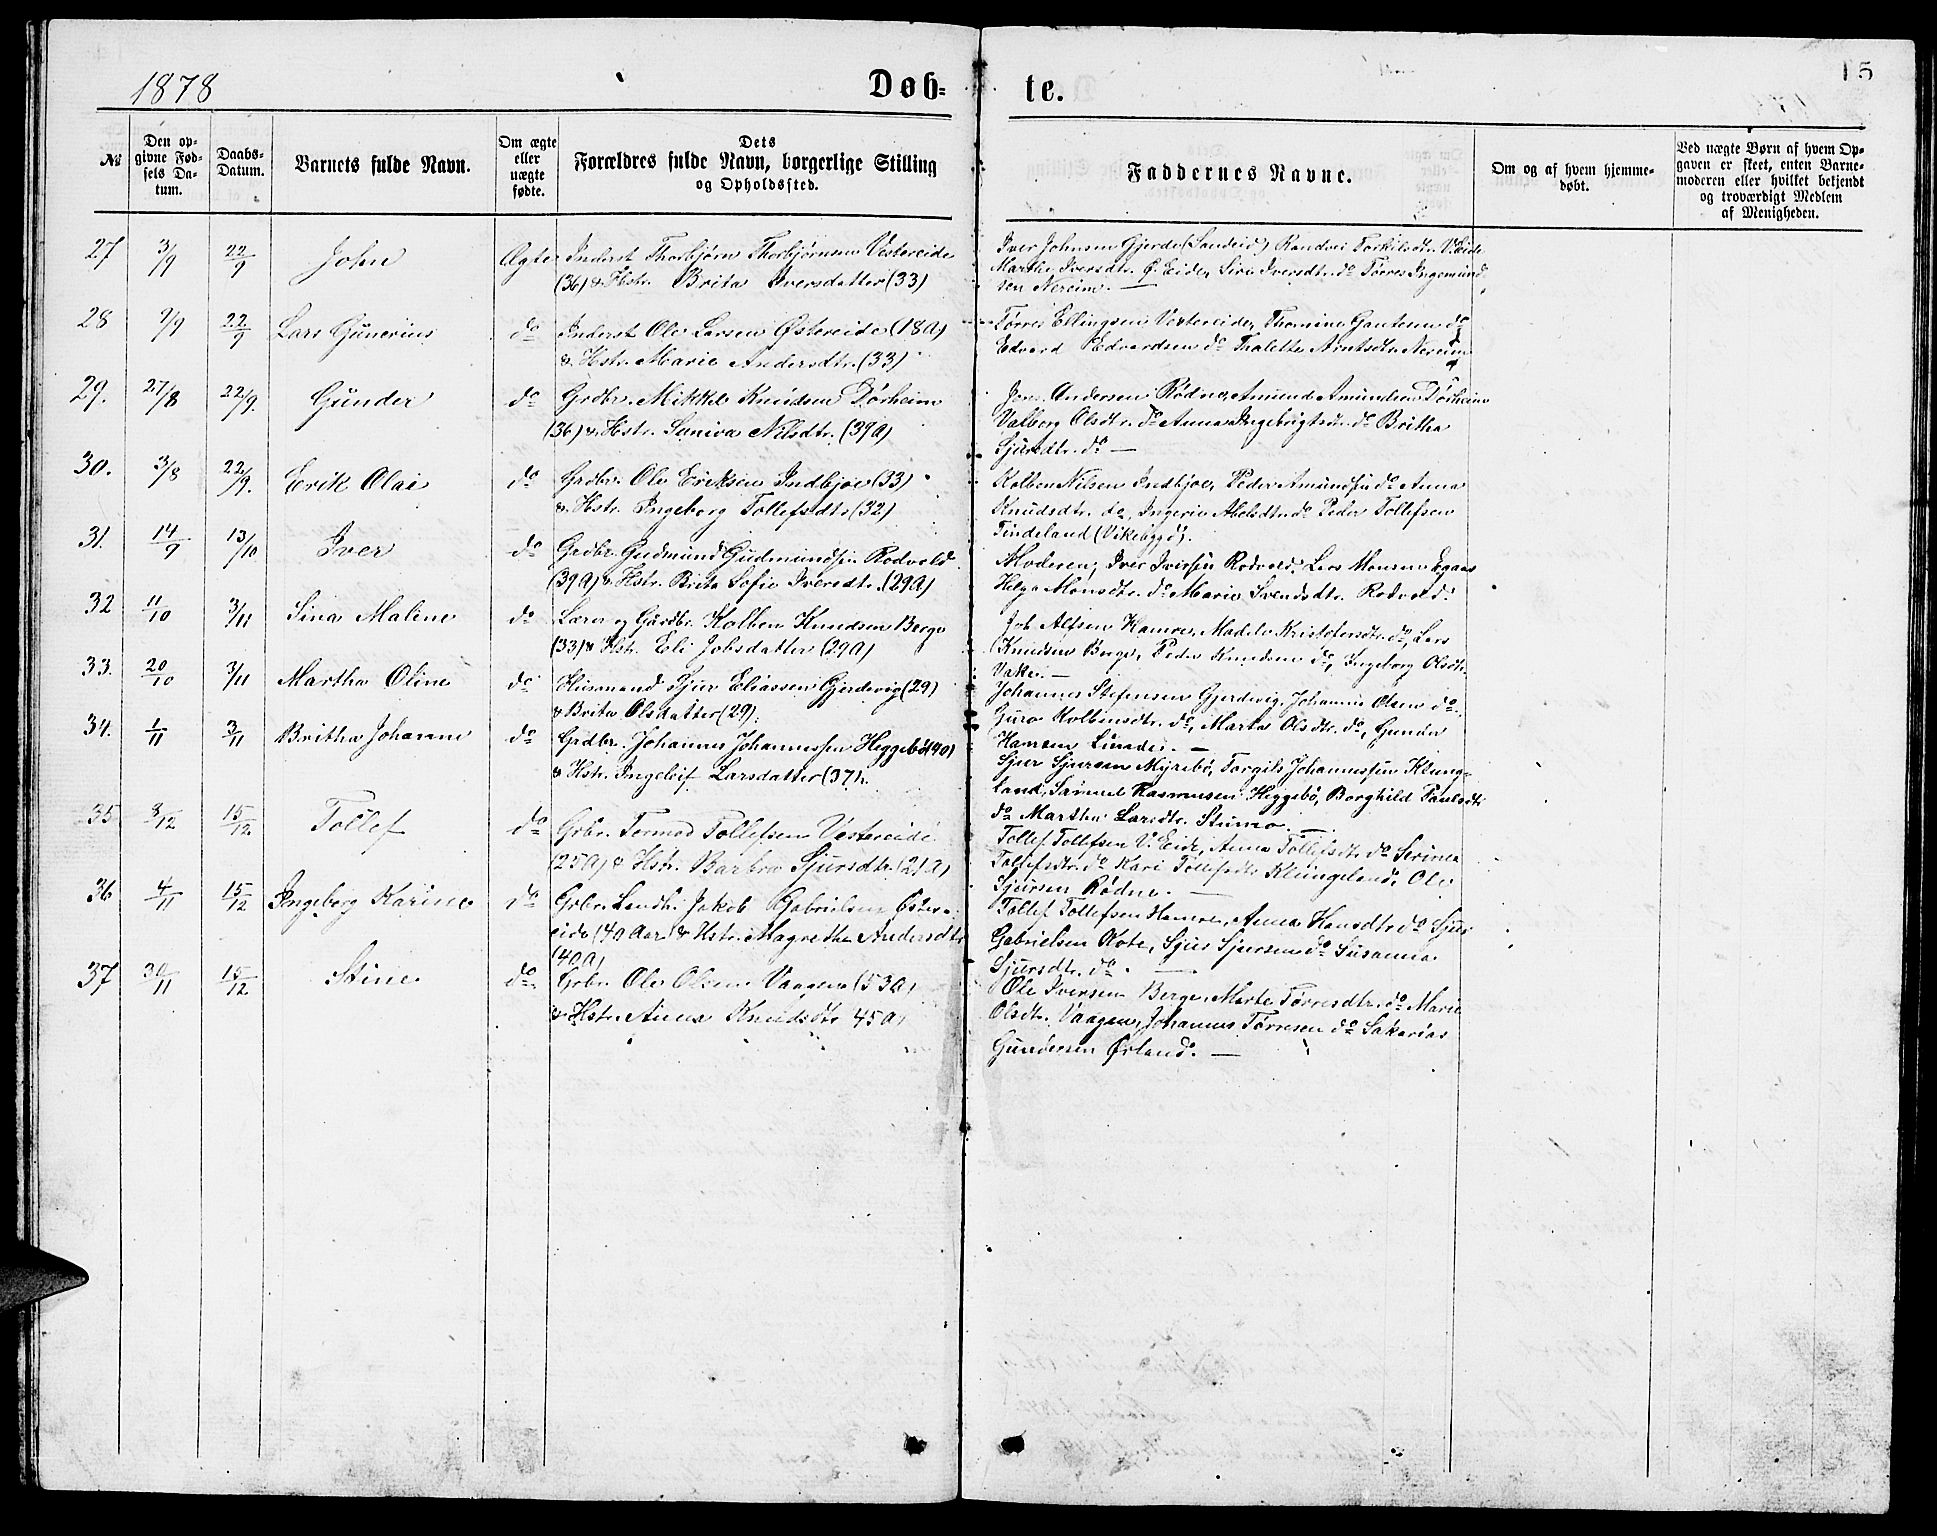 1878
Døb-
te.
15
№
Den op-
givne Fød-
sels Da-
tum.
Daabs-
Datum.
Barnets fulde Navn.
Om ægte
eller
uægte
fødte.
Dets
Forældres fulde Navn, borgerlige Stilling
og Opholdssted.
Faddernes Navne.
Om og af hvem hjemme-
døbt.
Ved uægte Børn af hvem Op-
gaven er skeet, enten Barne-
moderen eller hvilket betjendt
og troværdigt Medlem
af Menigheden.
27
3/9
22/9
John
Ægte
Inderst Thorbjørn Thorbjørnsen Vestereide
(36) & Hstr. Brita Iversdatter (33)
Iver Johnsen Gjerde (Sandeid) Randvei Torkilsdtr. V.Eide
Marthe Iversdtr. Ø. Eide, Siri Iversdtr. do Tørres Ingemund
sen Nereim. —
28
9/9
22/9
Lars Gunerius
do
Inderst Ole Larsen Østereide (18a)
& Hstr. Marie Andersdtr. (33)
Tørres Ellingsen Vestereide, Thomine Gautesen do
Edvard Edvardsen do Thalette Arntsdtr. Nereim
29.
27/8
22/9.
Gunder
do
Grdbr. Mikkel Knudsen Dørheim
(36) & Hstr. Suniva Nilsdtr. (39a)
Jens Andersen Rødne, Amund Amundsen Dørheim
Valborg Olsdtr. do Anna Ingebrigtsdtr. do Britha
Sjursdtr. do —
30.
3/8
22/9.
Erik Olai
do
Grdbr. Ole Eriksen Indbjoe (33)
& Hstr. Ingeborg Tollefsdtr (32)
Kolben Nilsen Indbjoe, Peder Amundsen do Anna
Knudsdtr. do, Ingerie Abelsdtr. do Peder Tollefsen
Tindeland (Vikebygd).
31.
14/9
13/10
Iver
do
Grdbr. Gudmund Gudmundsen Rodvold
(39a) & Hstr. Brita Sofie Iversdtr. (29a)
Moderen, Iver Iversen Rodvold. Lars Monsen Egaas
Helga Monsdtr. do Marie Svendsdtr. Rodvold.
32
11/10
3/11
Sina Maline
do
Lærer og Gardbr. Kolben Knudsen Berge
(33) & Hstr. Eli Jobsdatter (29a)
Job Alfsen Hamre, Madele Kristofersdtr. do, Lars
Knudsen Berge, Peder Knudsen do, Ingeborg Olsdtr.
Vake. —
33.
20/10
3/11
Martha Oline
do
Husmand Sjur Eliassen Gjerdevig (29)
& Brita Olsdatter (29).
Johannes Stefensen Gjerdevig, Johannes Olsen do.
Guro Kolbensdtr. do, Marta Olsdtr. do, Gunder
Hansen Lunde. —
34.
1/11
3/11
Britha Johanne
do
Grdbr. Johannes Johannessen Heggebø (40)
& Hstr. Ingeleif Larsdatter (37).
Sjur Sjursen Myrebø, Torgils Johannessen Klung-
land, Samuel Rasmussen Heggebø, Borghild Paulsdtr
do Martha Larsdtr. Stumo. —
35
3/12
15/12
Tollef
do
Grbr. Tormod Tollefsen Vestereide
(25a) & Hstr. Barbra Sjursdtr. (21a)
Tollef Tollefsen V. Eide, Anna Tollefsdtr. do Serina
Tollefsdtr. do Kari Tollefsdtr Klungeland, Ole
Sjursen Rødne. —
36
4/11
15/12
Ingeborg Karine
do
Grbr. Lendh. Jakob Gabrielsen Øster-
eide (40 Aar) & Hstr. Magretha Andersdtr
(40a)
Tollef Tollefsen Hamre, Anna Hansdtr. do Sjur
Gabrielsen Kote, Sjur Sjursen do Susanna
Sjursdtr. do. —
37
30/11
15/12
Stine
do
Grbr. Ole Olsen Vaagen (53a)
& Hstr. Anna Knudsdtr 45a)
Ole Iversen Berge, Marte Tørresdtr. do Marie
Olsdtr. Vaagen, Johannes Tørresen do Sakarias
Gundersen Ørland. —